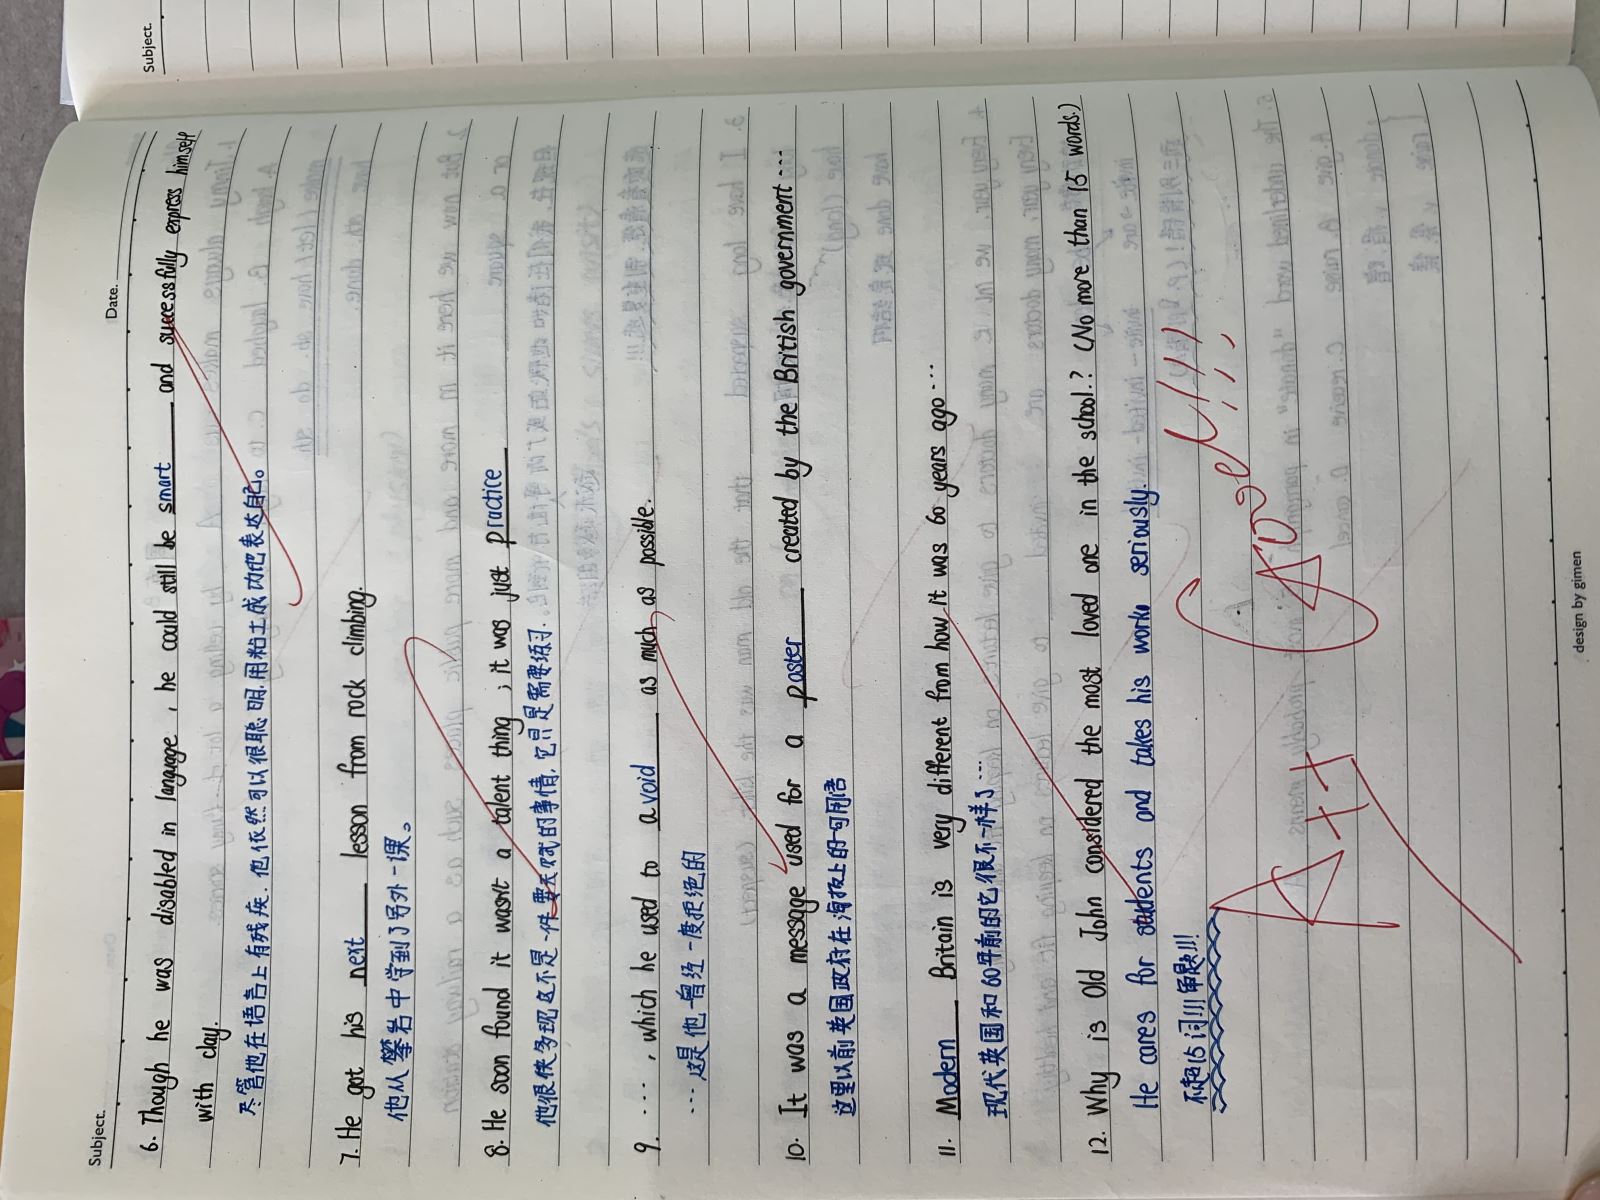 Subject.
Subject.
Date.
6. Though he was disabled in language, he could still be smart and successfully express himself
with clay.
尽管他在语言上有残疾，他依然可以很聪明，用粘土成功地表达自己。
7. He got his next lesson from rock climbing.
他从攀岩中学到了另外一课。
8. He soon found it wasn't a talent thing; it was just practice
他很快发现这不是一件要天赋的事情，它只是需要练习.
9. ...., which he used to avoid as much as possible.
...这是他曾经一度拒绝的
10. It was a message used for a poster created by the British government....
这里以前英国政府在海报上的一句用语
11. Modern Britain is very different from how it was 60 years ago....
现代英国和60年前的它很不一样了...
12. Why is Old John considered the most loved one in the school.? (No more than 15 words.)
He cares for students and takes his work seriously.
不超15词!!! 审题!!!
A++
Good!!!
design by gimen